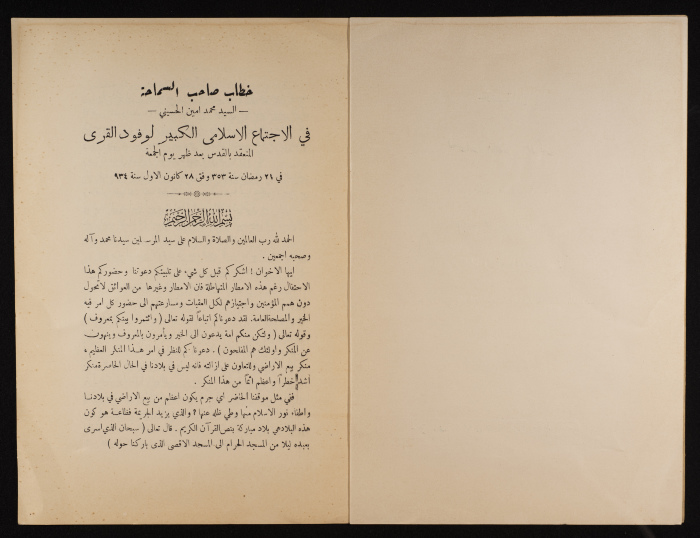 خطاب صاحب السماحة
— السيد محمد امين الحسيني —
في الاجتماع الاسلامي الكبير لوفود القرى
المنعقد بالقدس بعد ظهر يوم الجمعة
في ٢١ رمضان سنة ٣٥٣ وفق ٢٨ كانون الاول سنة ٩٣٤
بسم الله الرحمن الرحيم
الحمد لله رب العالمين والصلاة والسلام على سيد المرسلين سيدنا محمد وآله
وصحبه اجمعين .
ايها الاخوان ! اشكركم قبل كل شيء على تلبيتكم دعوتنا وحضوركم هذا
الاحتفال رغم هذه الامطار المتهاطلة فان الامطار وغيرها من العوائق لا تحول
دون همم المؤمنين واجتيازهم لكل العقبات ومسارعتهم الى حضور كل امر فيه
الخير والمصلحة العامة. لقد دعوناكم اتباعاً لقوله تعالى ( وائتمروا بينكم بمعروف )
وقوله تعالى ( ولتكن منكم امة يدعون الى الخير ويأمرون بالمعروف وينهون
عن المنكر واولئك هم المفلحون ) . دعوناكم للنظر في امر هذا المنكر العظيم ،
منكر بيع الاراضي وللتعاون على ازالته فانه ليس في بلادنا في الحال الحاضرة منكر
أشد خطراً واعظم اثماً من هذا المنكر .
ففي مثل موقفنا الحاضر اي جرم يكون اعظم من بيع الاراضي في بلادنا
واطفاء نور الاسلام منها وطي ظله عنها ؟ والذي يزيد الجريمة فظاعة هو كون
هذه البلاد هي بلاد مباركة بنص القرآن الكريم . قال تعالى ( سبحان الذي اسرى
بعبده ليلا من المسجد الحرام الى المسجد الاقصى الذي باركنا حوله )